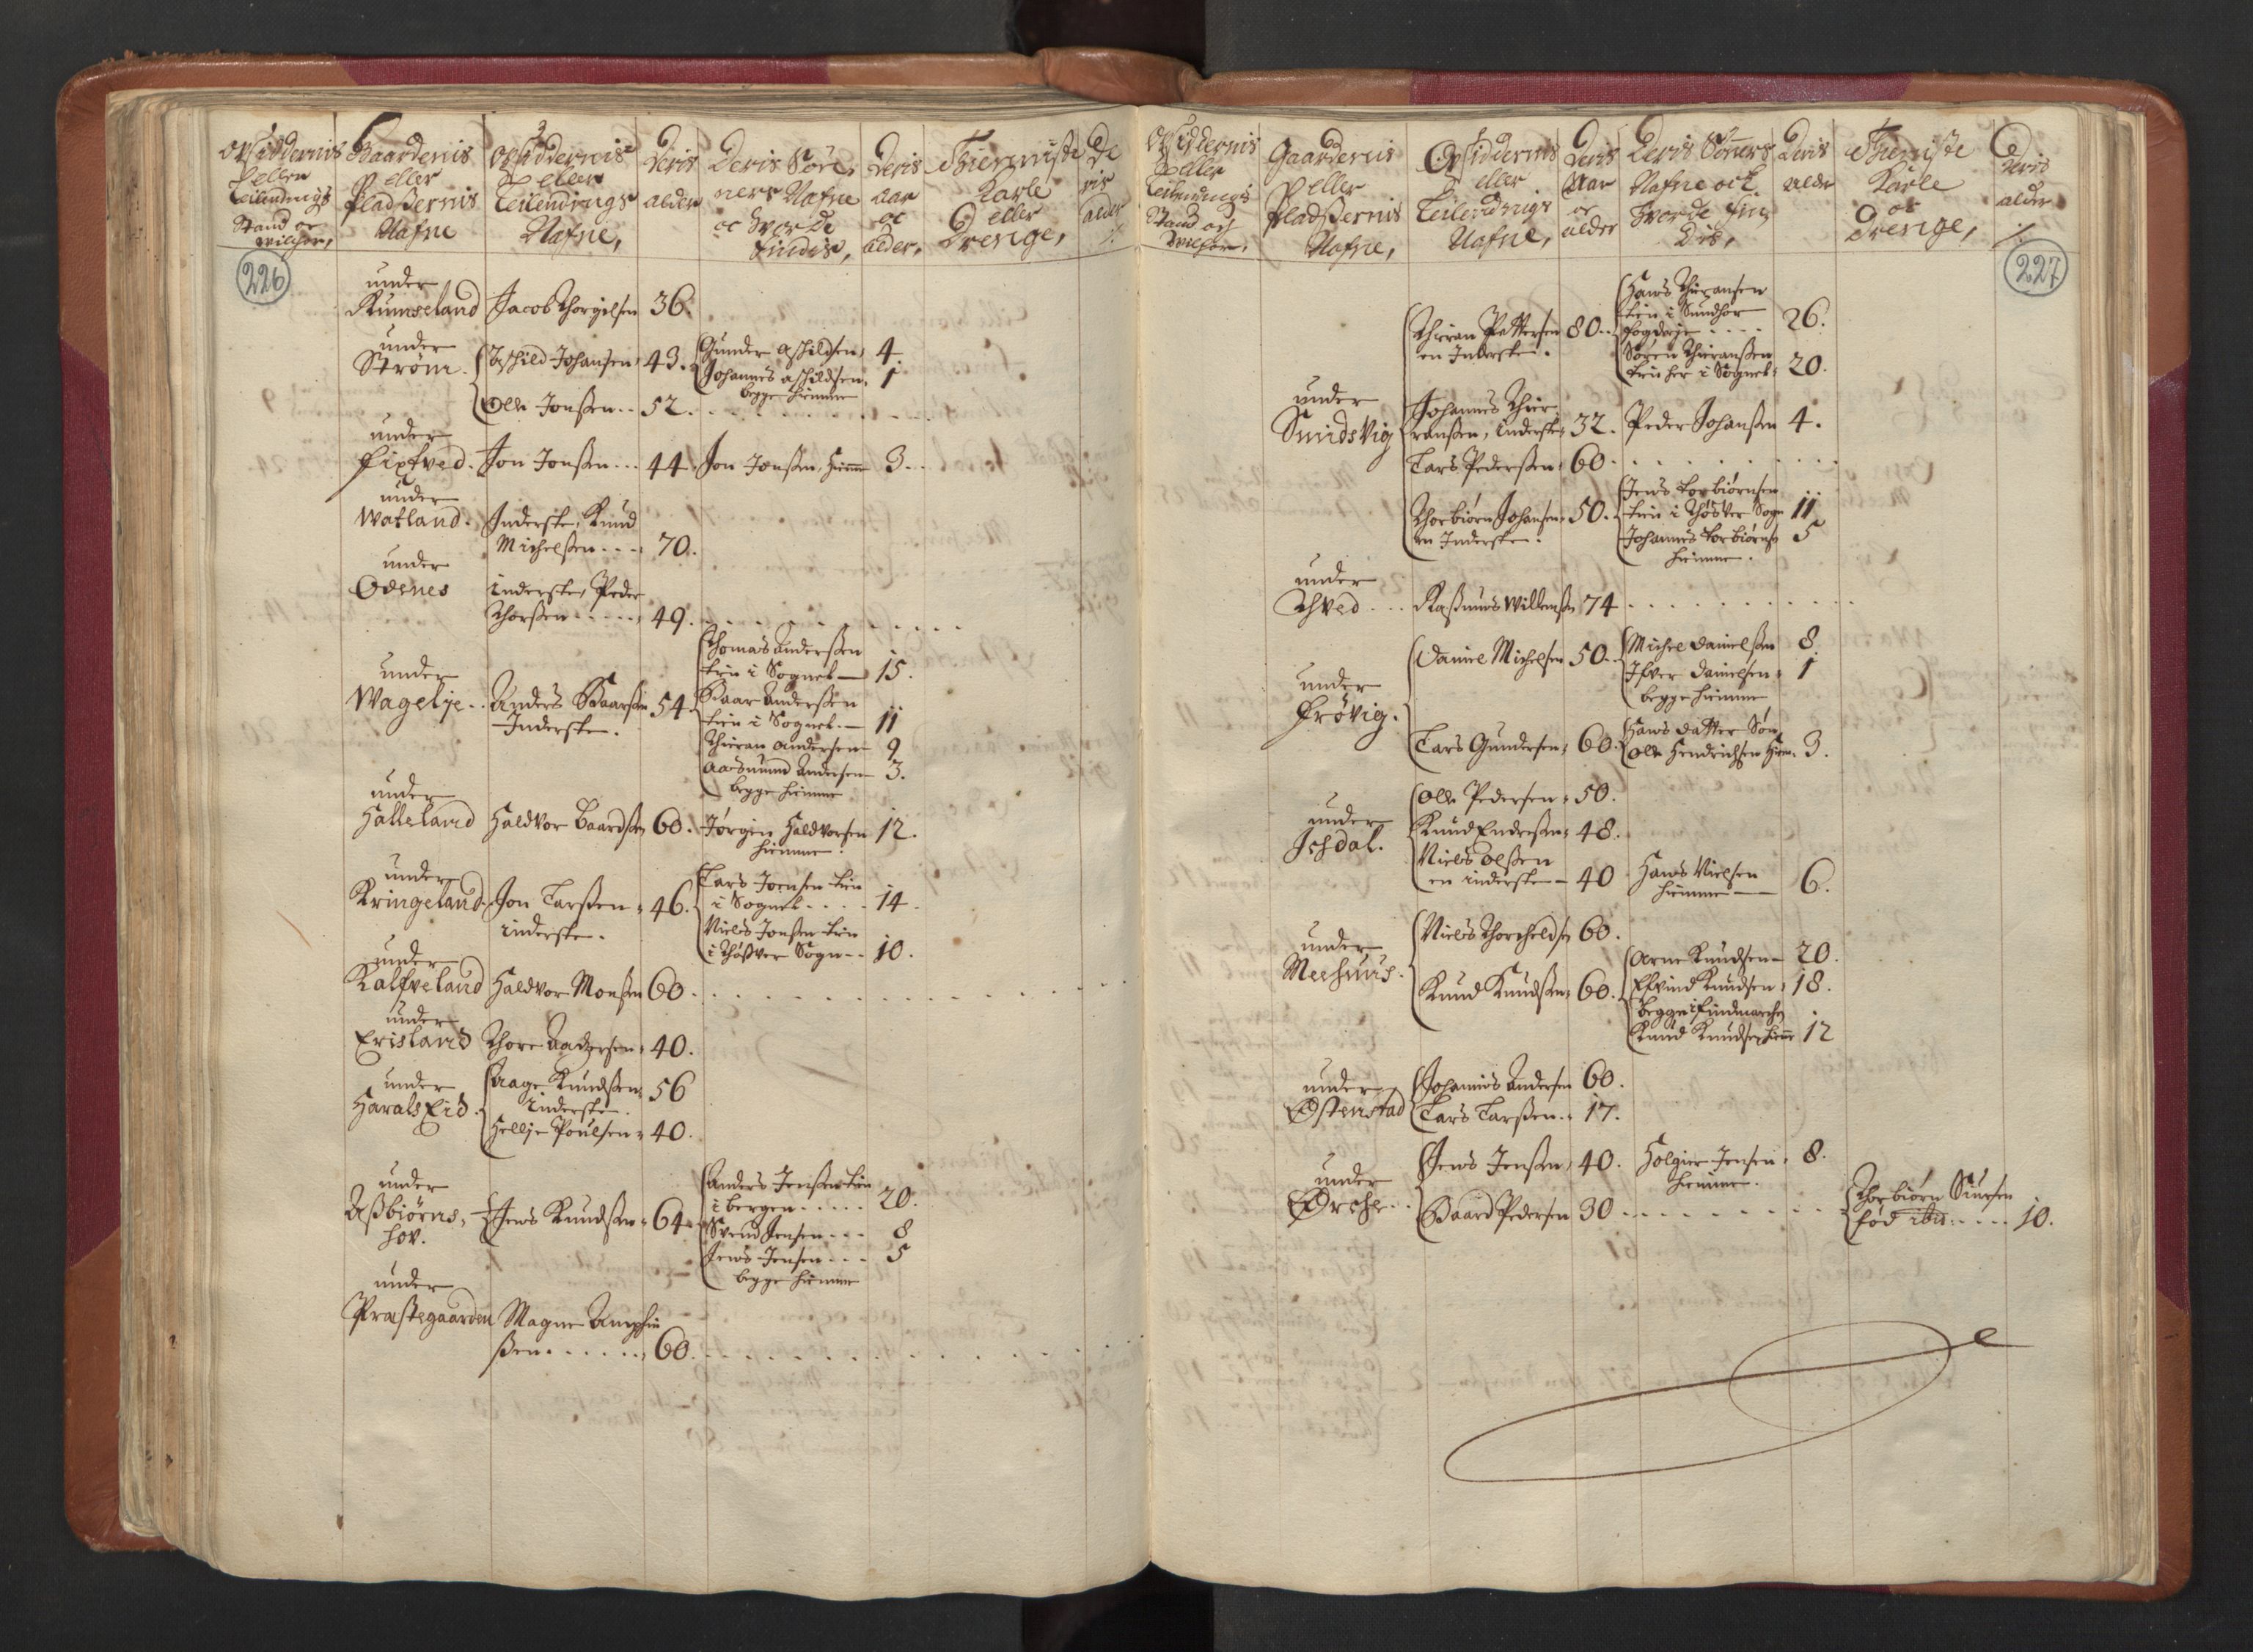 Opsiddernis
eller
Leilendings
Stand oc
Vilchor,
Gaardernis
eller
Pladsernis
Nafne
Opsiddernis
eller
Leilendings
Nafne,
Deris
alder
Deris Søn-
ners Nafne
oc hvor De
findis,
Deris
aar
oc
alder,
Thieniste
Karle
eller
Drenge,
De
ris
alder
226
under
Rumseland Jacob Thorgilsen 36.
under
Strøm. Aschild Johansen 43. Gunder Aschildsen 4.
Johannes Aschildsen 1
begge hiemme
Olle Jonssen 52.
under
Fixsved. Jon Jonssen 44. Jon Jonssen, hiemme 3
under
Watland. Inderste, Knud
Michelssen 70.
under
Odenes inderste, Peder
Thorssen 49.
under
Wagelje Anders Baarssen 54.
Inderste.
Thomas Anderssen
tien i Sognet 15.
Baar Anderssen
tien i Sognet 11
Thieran Andersen 9
Aasmund Andersen 3.
begge hiemme
under
Halleland Haldvor Baardssen 60. Jørgen Haldvorsen 12.
hiemme.
under
Kringeland Jon Larssen 46.
inderste.
Lars Jonsen tien
i Sognet 14.
Niels Jonssen tien
i Thøsver Sogn 10.
under
Kalfveland Haldvor Monssen 60.
under
Erisland Thore Aadzersen 40.
under
Harals Eid. Aage Knudssen 56
inderste.
Hellje Poulsen 40.
under
Assbiørns-
hov.
Jens Knudssen 64
Anders Jenssen tien
i bergen 20.
Svend Jensen 8
Jens Jensen 5
begge hiemme
under
Præstegaarden Magne Amphin
ssen 60.
Opsiddernis
eller
Leilendings
Stand och
Vilchor.
Gaardernis
eller
Pladssernis
Nafne,
Opsiddernis
eller
Leilendings
Nafne,
Deris
Aar
oc
alder
Deris Sønners
Nafne och
hvor de fin-
dis,
Deris
alder
Thieniste
Karle
oc
Drenge,
Deris
alder
227
under
Smidsvig
Thieran Pettersen 80
en Inderste.
Hans Thieransen
tien i Sundhor
fogderje 26.
Søren Thieranssen
tien her i Sognet 20.
Johannes Thier-
ranssen, inderste 32. Peder Johanssen 4.
Lars Pederssen 60
Thorbiørn Johansen 50.
en Inderste.
Jens Torbiørnsen
tien i Thøsver Sogn 11
Johannes Torbiørns 5
hiemme.
under
Thved Rassmus Willemssen 74
under
Frøvig.
Daniel Michelsen 50 Michel Danielssen 8.
Ifver Danielsen 1
begge hiemme
Lars Gundersen 60. Hans datter Søn
Olle Hendrichsen hiem. 3.
under
Isdal.
Olle Pedersen 50.
Knud Endressen 48.
Niels Olssen
en inderste 40 Hans Nielsen 6.
hiemme
under
Meehuus.
Niels Thorchelds 60.
Knud Knudssen 60.
Arne Knudsen 20.
Efvind Knudsen 18.
begge i findmarchen
Knud Knudsen hiem 12
under
Østenstad
Johannes Andersen 60.
Lars Larssen 17.
under
Ørche
Jens Jenssen 40. Holgier Jensen 8.
hiemme.
Baard Pedersen 30
Thorbiørn Siursen
fød ibid: 10.